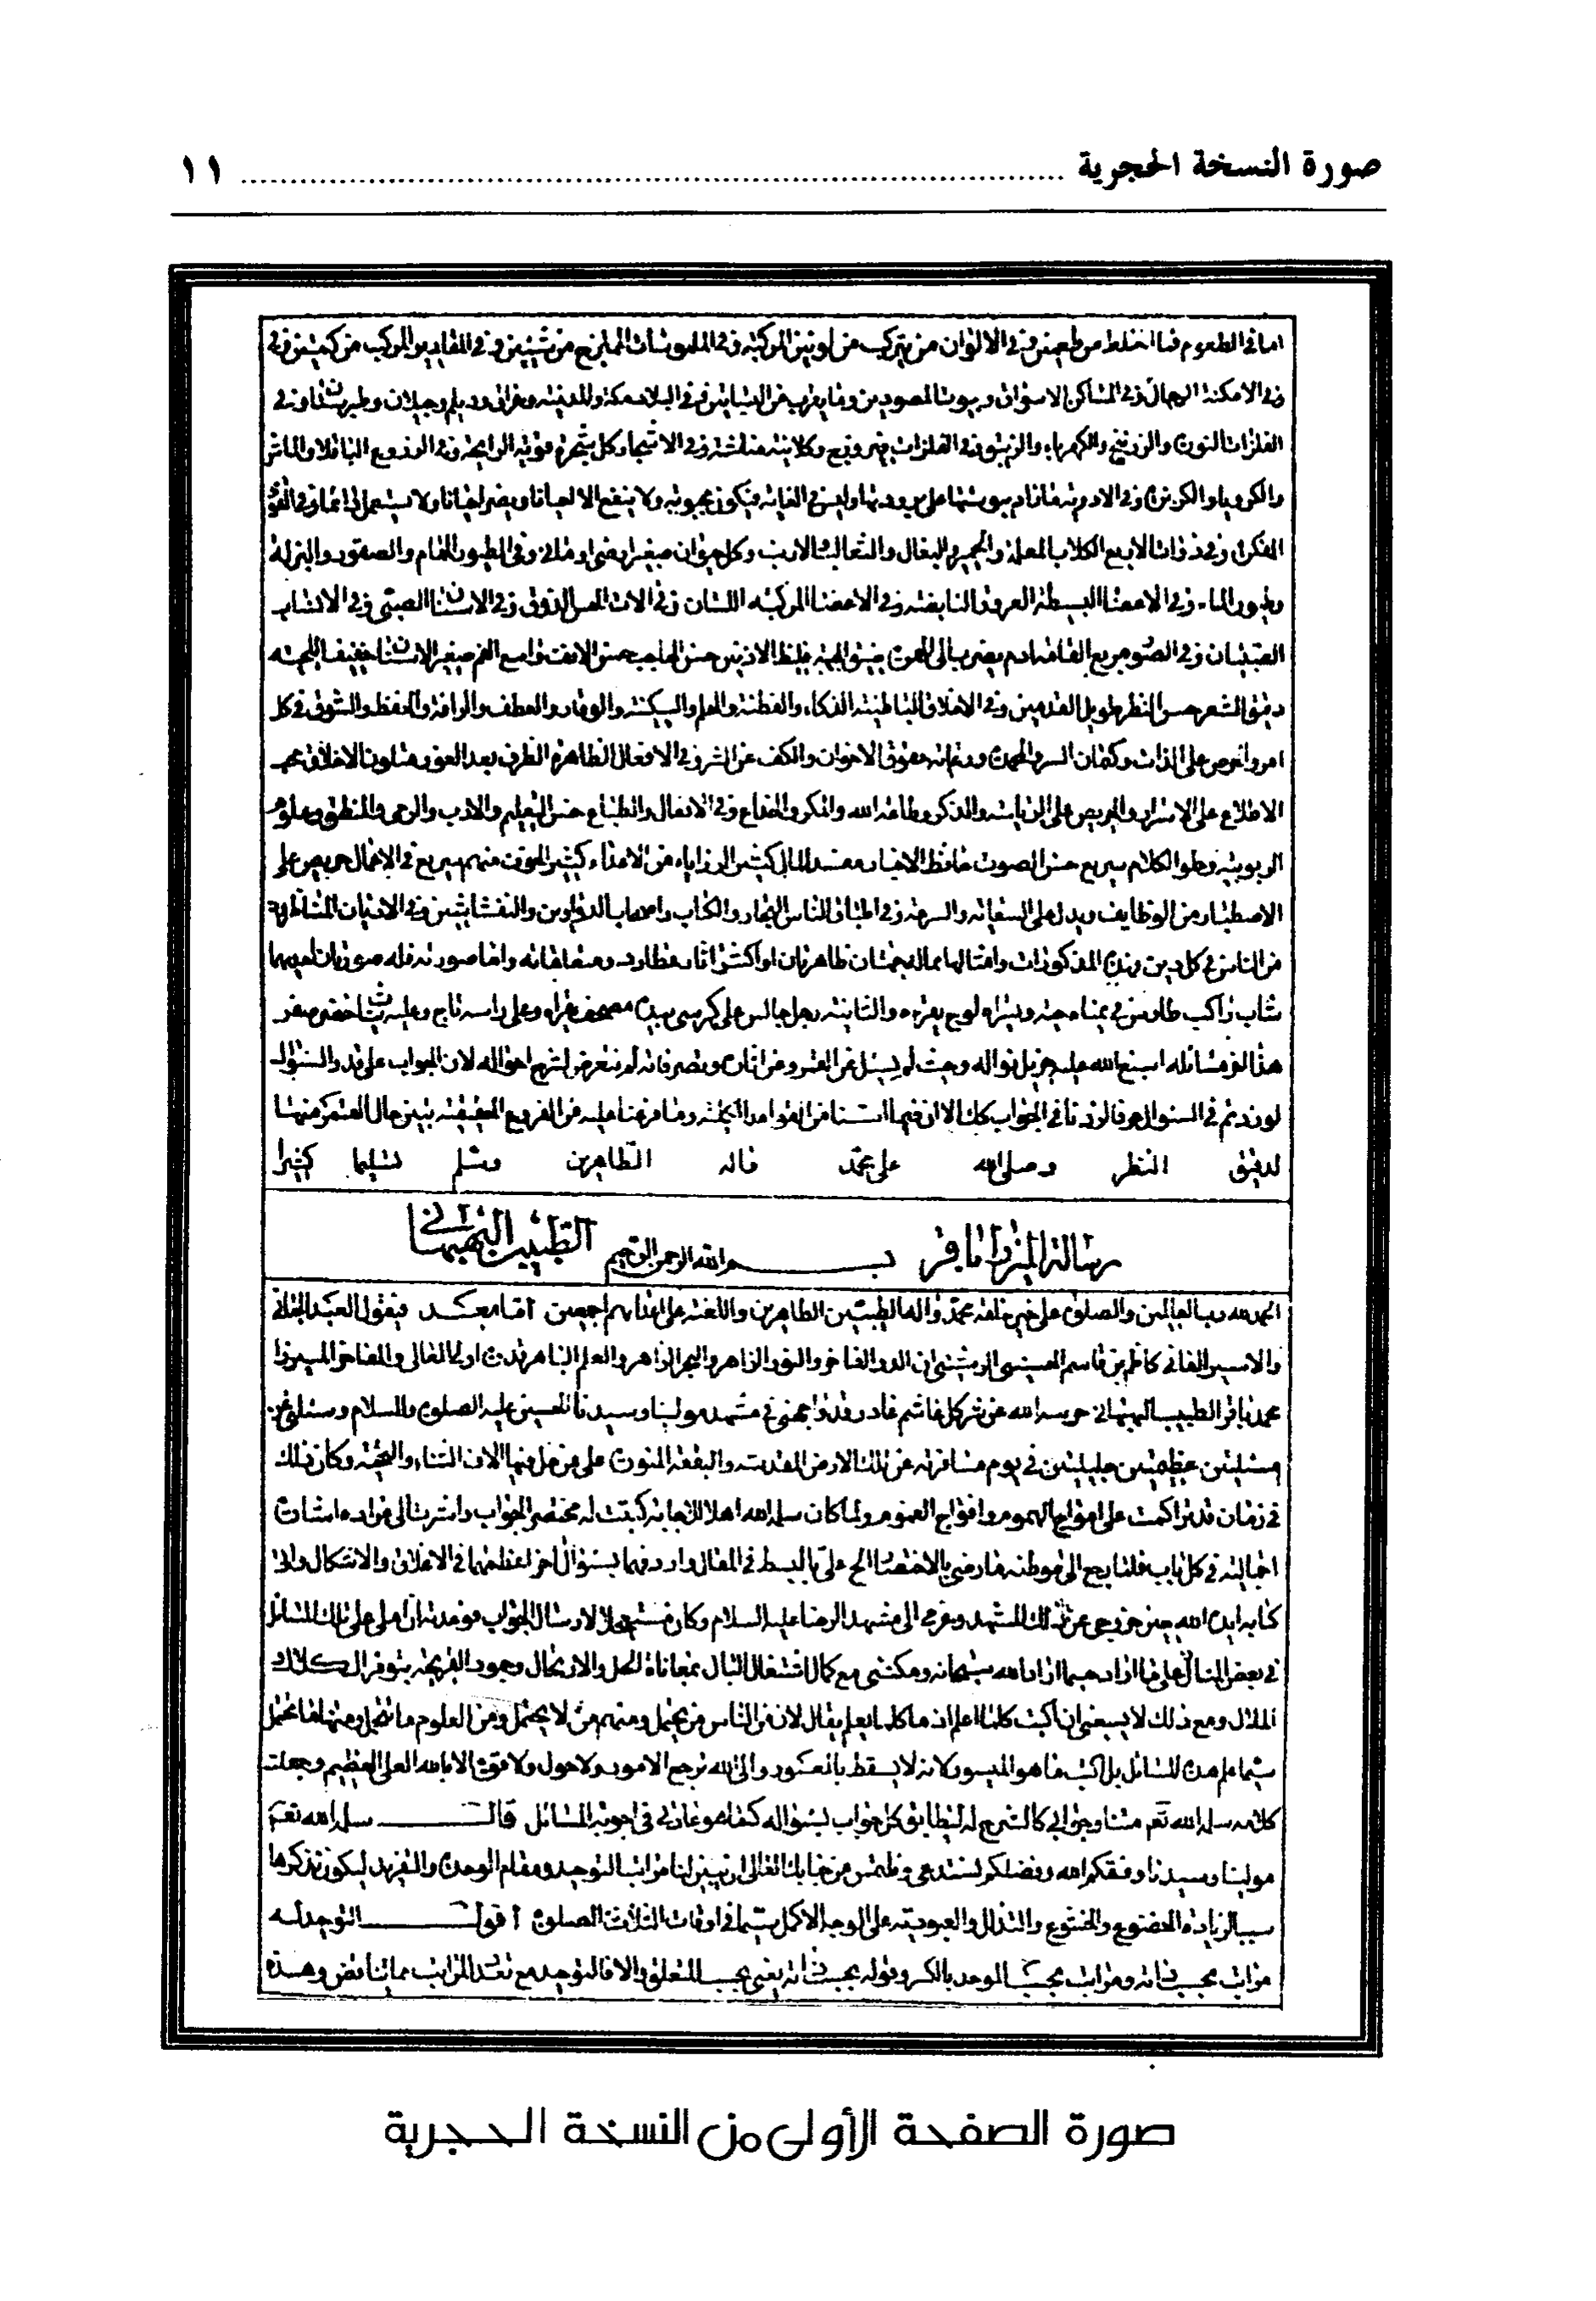 صورة النسخة الحجرية ........ ١١
اما في الطعوم فما اختلط من طعمين و في الالوان من يتركب من لونين المركبة و في الملموسات الممتزج من شيئين و في المقادير المركب من كميتين و في
و في الامكنة الرمال و في المساكن الاسواق و بيوت المصورين وما يقرب من البساتين و في البلاد مكة والمدينة وعراق و ديلم وجيلان و طبرستان و في
الفلزات النورة والزرنيخ والكهرباء والزيبق و في الفلزات فيروزج و في الاشجار كل شجرة قوية الرايحة و في الزروع الباقلا والماش
والكرويا والكزبرة و في الادوية ولا ينفع الا احيانا ويضر احيانا ولا يستعمل في القوى
الفكرة و في ذوات الاربع الكلاب المعلمة والحمير والبغال والثعالب والارنب وكل حيوان صغير و في الطيور الحمام والصقور والبزاة
وطيور الماء و في الاعضاء البسيطة العروق النابضة و في الاعضاء المركبة اللسان و في الات الحس الذوق و في الاسنان الصبي و في الانساب
الصبيان و في الصور مربع القامة ادم يضرب الى الحمرة ضيق الجبهة غليظ الاذنين حسن الحاجب حسن الانف واسع الفم صغير الاسنان خفيف اللحية
دقيق الشعر حسن النظر طويل القدمين و في الاخلاق الباطنية الذكاء والفطنة والعلم والسكينة والوقار والعطف والرافة والحفظ والشوق في كل
امر والحرص على اللذات وكتمان السر حقوق الاخوان والكف عن الشر و في الافعال الظاهرة متلون الاخلاق محب
الاطلاع على الاسرار والحريص على الرياسة والذكر وطاعة الله والمكر والخداع و في الافعال والطبايع حسن التعليم والادب والوحى والمنطق وعلوم
الربوبية وحلو الكلام سريع حسن الصوت حافظ الاخبار مفسد المال كثير الرزايا من الاعداء كثير الخوف منهم سريع في الاعمال حريص على
من الوظايف ويدل على السعاية والسرعة و في اطباق الناس التجار والكتاب واصحاب الدواوين والنقاشين و في الاديان المناظرة
من الناس في كل دين وهذه المذكورات وامثالها ظاهرتان او اكثر اثار عطارد ومتعلقاته واما صورته فله صورتان احديهما
شاب راكب طاوس في يمناه حية ويسراه لوح يقرءه والثانية رجل جالس على كرسي بيده مصحف يقراه وعلى راسه تاج وعليه ثياب خضر وصفر
هذا اخر مسائله اسبغ الله عليه جزيل نواله وحيث لم يسئل عن القمر وعن اثاره وتصرفاته لم نتعرض لشرح احواله لان الجواب على قدر السؤال
لو زدتم في السؤال لزدنا في الجواب الا ان فيما اسسنا من القواعد الكلية وما فرعنا عليه من الفروع الحقيقية تبين حال القمر منها
لدقيق النظر وصلى الله على محمد واله الطاهرين وسلم تسليما كثيرا
رسالة الميرزا باقر بسم الله الرحمن الرحيم الطبيب البهبهاني
الحمد لله رب العالمين والصلوة على خير خلقه محمد واله الطيبين الطاهرين واللعنة على اعدائهم اجمعين اما بعد فيقول العبد الجاني
والاسير الفاني كاظم بن قاسم الحسيني الرشتي ان الدر الفاخر والنور الزاهر والبحر الزاخر والعلم الباهر اولى المعالي والمفاخر الميرزا
محمد باقر الطبيب البهبهاني حرسه الله عن شر كل غاشم غادر قد واجهني في مشهد مولينا وسيدنا الحسين عليه الصلوة والسلام وسئلني عن
مسئلتين عظيمتين جليلتين في يوم مسافرته عن تلك الارض المقدسة والبقعة المنورة على من حل فيها الاف الثناء والتحية وكان ذلك
في زمان قد تراكمت على امواج الهموم وافواج الغموم ولما كان سلمه الله اهلا للاجابة كتبت له مختصر الجواب واشرت الى مراده اشارة
اجمالية في كل باب فلما رجع الى موطنه ما رضي بالاختصار الح علي بالبسط في المقال واردفهما بسؤال اخر اعظم منهما في الاغلاق والاشكال واتى
كتابه ايده الله حين خروجي عن ذلك المشهد وعزمي الى مشهد الرضا عليه السلام وكان مستعجلا لارسال الجواب فوعدته ان املى على تلك المسائل
في بعض المنازل على ما اراد حسبما اراد الله سبحانه ومكنني مع كمال اشتغال البال بمعاناة الحل والارتحال وجمود القريحة بتوفر الكلال و
الملال ومع ذلك لا يسعني ان اكتب كلما اعلم اذ ما كل ما يعلم يقال لان من الناس من يحتمل ومنهم من لا يحتمل ومن العلوم ما تحتمل ومنها ما لا تحتمل
سيما علم هذه المسائل بل اكتب ما هو الميسور لانه لا يسقط بالمعسور والى الله ترجع الامور ولا حول ولا قوة الا بالله العلي العظيم وجعلت
كلامه سلمه الله تعم متنا وجوابي كالشرح له ليطابق كل جواب بسؤاله كما هو عادتي في اجوبة المسائل قال سلمه الله تعم
مولينا وسيدنا وفقكم الله وفضلكم نستدعي ونلتمس من جنابك العالى ان تبين لنا مراتب التوحيد ومقام الوحدة والتفريد ليكون تذكرها
سببا لزيادة الخضوع والخشوع والتذلل والعبودية على الوجه الاكمل سيما في اوقات الثلاث الصلوة اقول التوحيد له
مراتب بحسب ذاته ومراتب بحسب الموحد بالكسر وقوله بحسب ذاته يعني بحسب المتعلق والا فالتوحيد مع تعدد المراتب مما يتناقض وهذه
صورة الصفحة الأولى من النسخة الحجرية